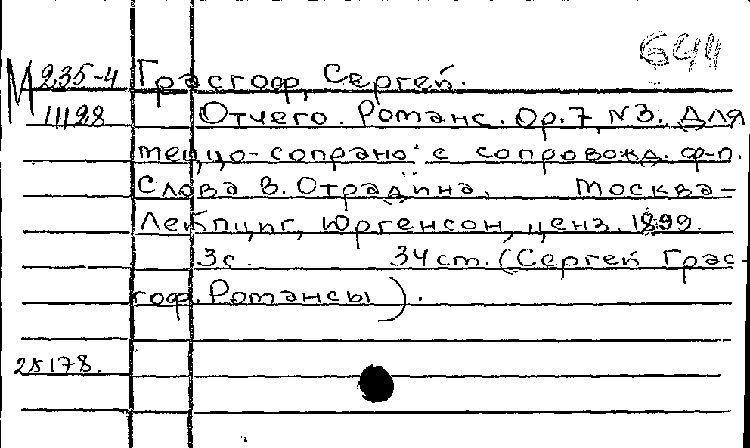 644
М 235-4 Грасгоф, Сергей.
11128 Отчего. Романс. Ор. 7, N3. Для
меццо-сопрано с сопровожд. ф-п.
Слова В. Отрадина. Москва-
Лейпциг, Юргенсон, ценз. 1899.
3с. 34 ст. (Сергей Грас-
гоф. Романсы).
28178.